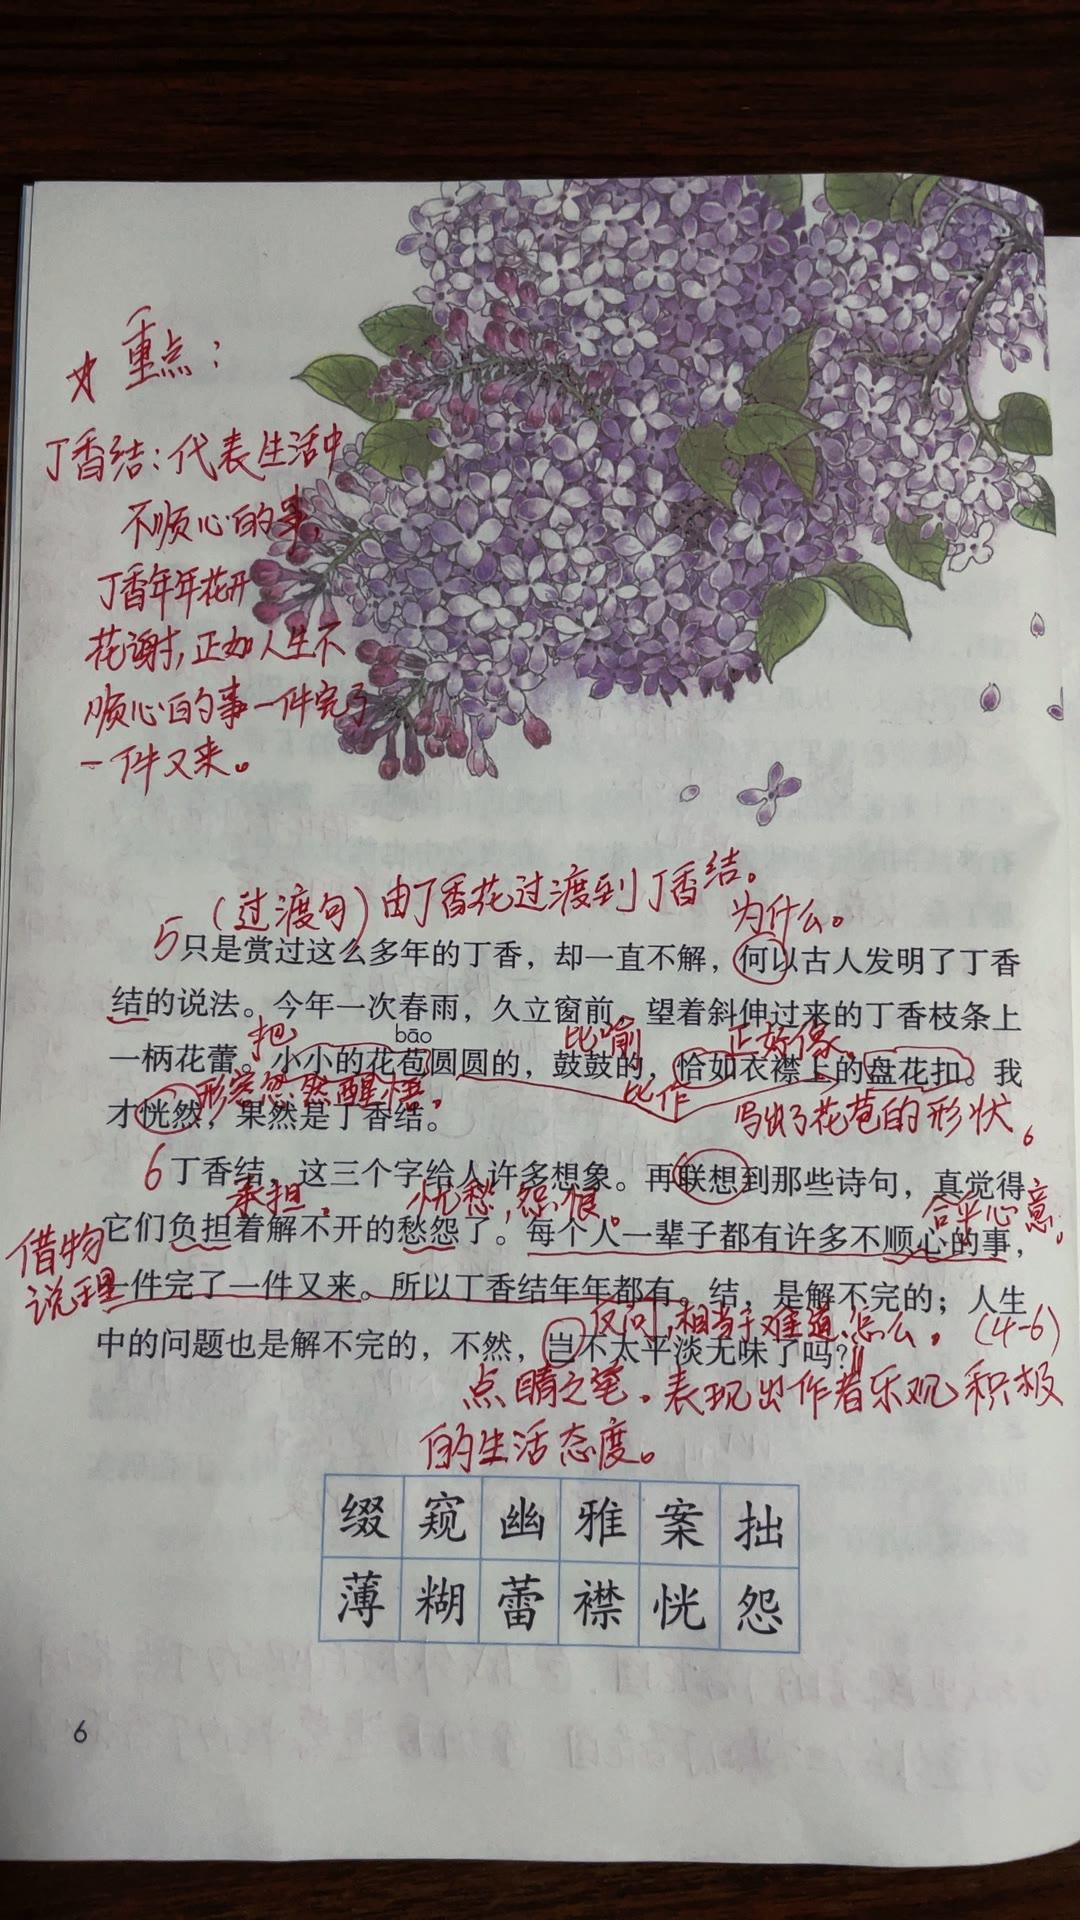 ☆重点：
丁香结：代表生活中
不顺心的事，
丁香年年花开
花谢，正如人生不
顺心的事一件完了
一件又来。
（过渡句）由丁香花过渡到丁香结。
为什么。
5只是赏过这么多年的丁香，却一直不解，何以古人发明了丁香
结的说法。今年一次春雨，久立窗前，望着斜伸过来的丁香枝条上
把 bāo 比喻 正好像。
一柄花蕾。小小的花苞圆圆的，鼓鼓的，恰如衣襟上的盘花扣。我
形容忽然醒悟。 比作 写出了花苞的形状。
才恍然，果然是丁香结。
6丁香结，这三个字给人许多想象。再联想到那些诗句，真觉得
承担。 忧愁，怨恨。 合乎心意。
它们负担着解不开的愁怨了。每个人一辈子都有许多不顺心的事，
借物
说理
一件完了一件又来。所以丁香结年年都有。结，是解不完的；人生
反问，相当于难道、怎么。（4-6）
中的问题也是解不完的，不然，岂不太平淡无味了吗？
点睛之笔。表现出作者乐观积极
的生活态度。
缀 窥 幽 雅 案 拙
薄 糊 蕾 襟 恍 怨
6